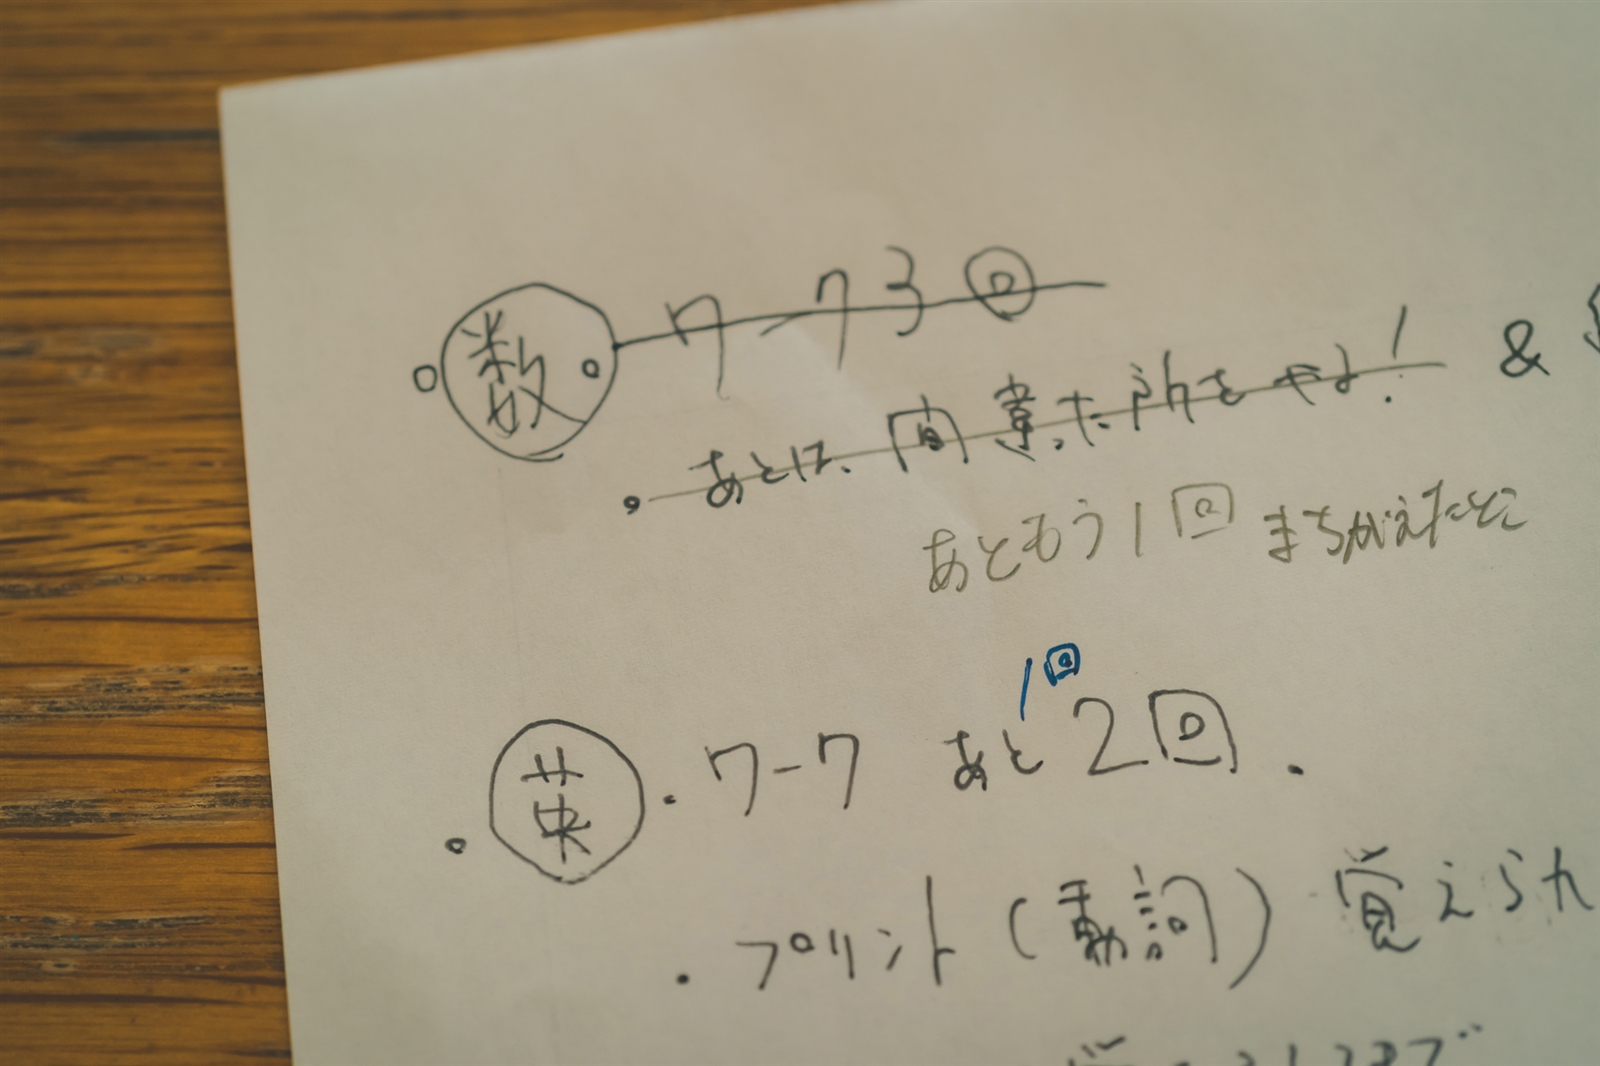 数 ワーク3回
・あとは、間違った所をやる! &
あともう1回 まちがえたとこ
1回
・英・ワーク あと2回.
・プリント(動詞)覚えられ